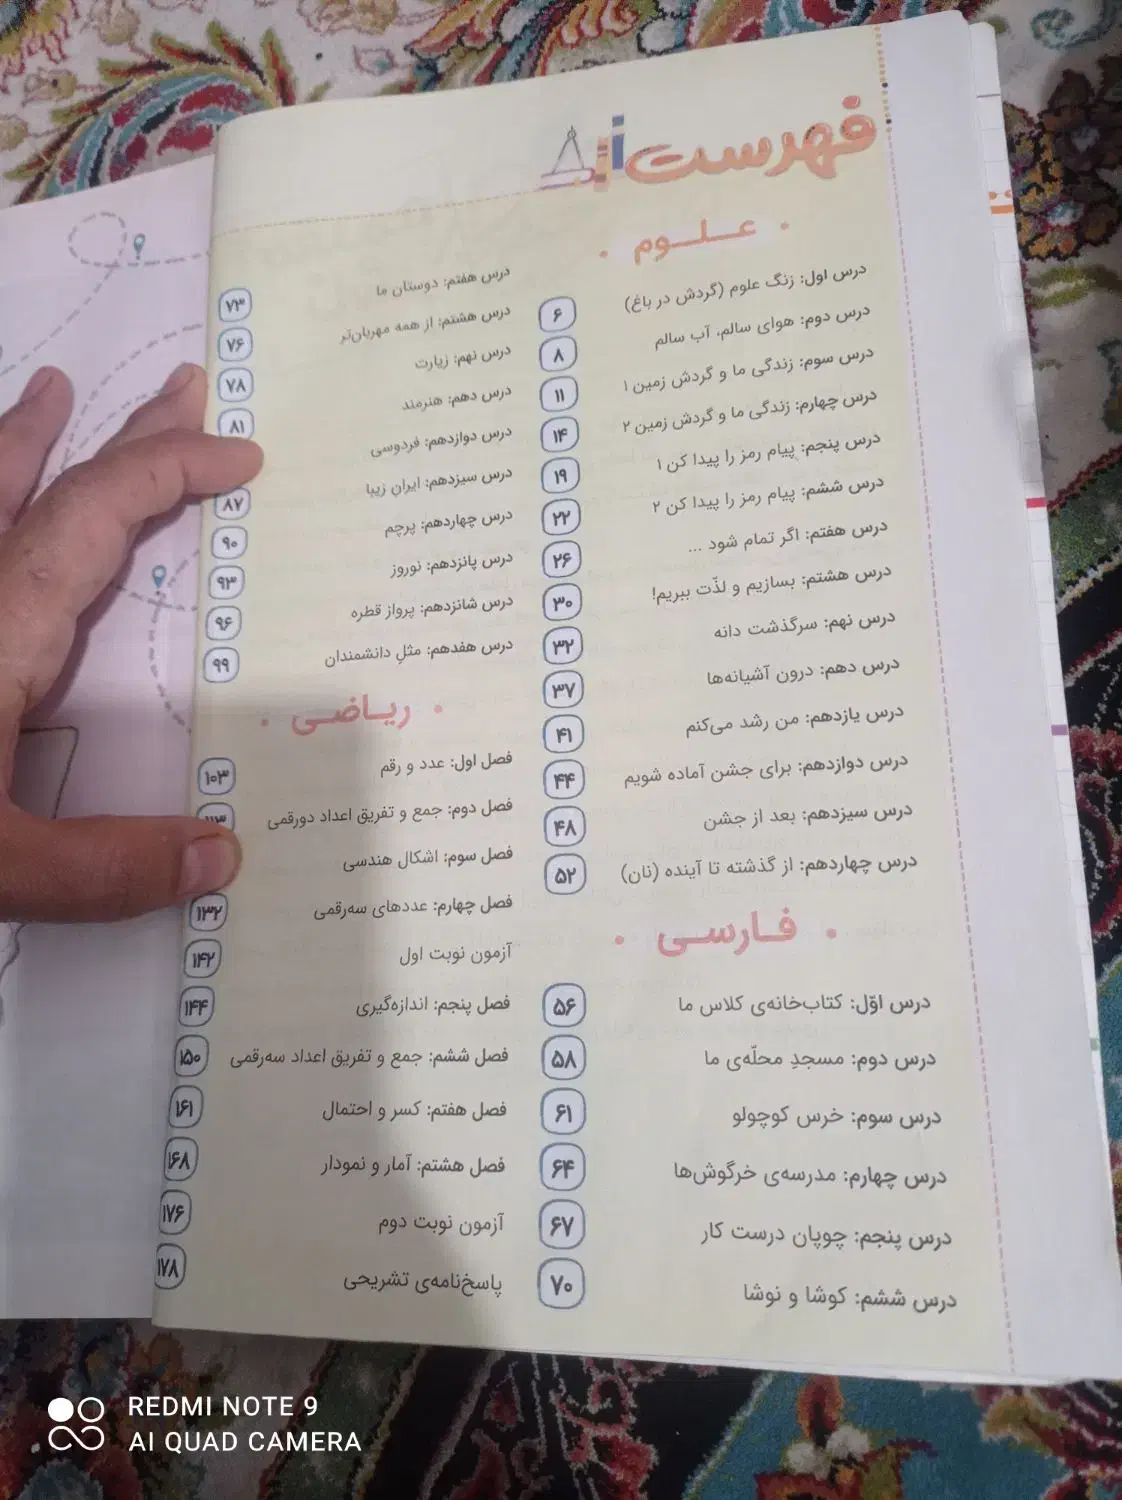 فهرست
علوم
درس اول: زنگ علوم (گردش در باغ) ۶
درس دوم: هوای سالم، آب سالم ۸
درس سوم: زندگی ما و گردش زمین ۱ ۱۱
درس چهارم: زندگی ما و گردش زمین ۲ ۱۴
درس پنجم: پیام رمز را پیدا کن ۱ ۱۹
درس ششم: پیام رمز را پیدا کن ۲ ۲۲
درس هفتم: اگر تمام شود ... ۲۶
درس هشتم: بسازیم و لذّت ببریم! ۳۰
درس نهم: سرگذشت دانه ۳۲
درس دهم: درون آشیانه‌ها ۳۷
درس یازدهم: من رشد می‌کنم ۴۱
درس دوازدهم: برای جشن آماده شویم ۴۴
درس سیزدهم: بعد از جشن ۴۸
درس چهاردهم: از گذشته تا آینده (نان) ۵۲
فارسی
درس اوّل: کتاب‌خانه‌ی کلاس ما ۵۶
درس دوم: مسجدِ محلّه‌ی ما ۵۸
درس سوم: خرس کوچولو ۶۱
درس چهارم: مدرسه‌ی خرگوش‌ها ۶۴
درس پنجم: چوپان درست کار ۶۷
درس ششم: کوشا و نوشا ۷۰
درس هفتم: دوستان ما ۷۳
درس هشتم: از همه مهربان‌تر ۷۶
درس نهم: زیارت ۷۸
درس دهم: هنرمند ۸۱
درس دوازدهم: فردوسی
درس سیزدهم: ایرانِ زیبا ۸۷
درس چهاردهم: پرچم ۹۰
درس پانزدهم: نوروز ۹۳
درس شانزدهم: پرواز قطره ۹۶
درس هفدهم: مثلِ دانشمندان ۹۹
ریاضی
فصل اول: عدد و رقم ۱۰۳
فصل دوم: جمع و تفریق اعداد دورقمی ۱۱۳
فصل سوم: اشکال هندسی
فصل چهارم: عددهای سه‌رقمی ۱۳۲
آزمون نوبت اول ۱۴۲
فصل پنجم: اندازه‌گیری ۱۴۴
فصل ششم: جمع و تفریق اعداد سه‌رقمی ۱۵۰
فصل هفتم: کسر و احتمال ۱۶۱
فصل هشتم: آمار و نمودار ۱۶۸
آزمون نوبت دوم ۱۷۶
پاسخ‌نامه‌ی تشریحی ۱۷۸
REDMI NOTE 9
AI QUAD CAMERA